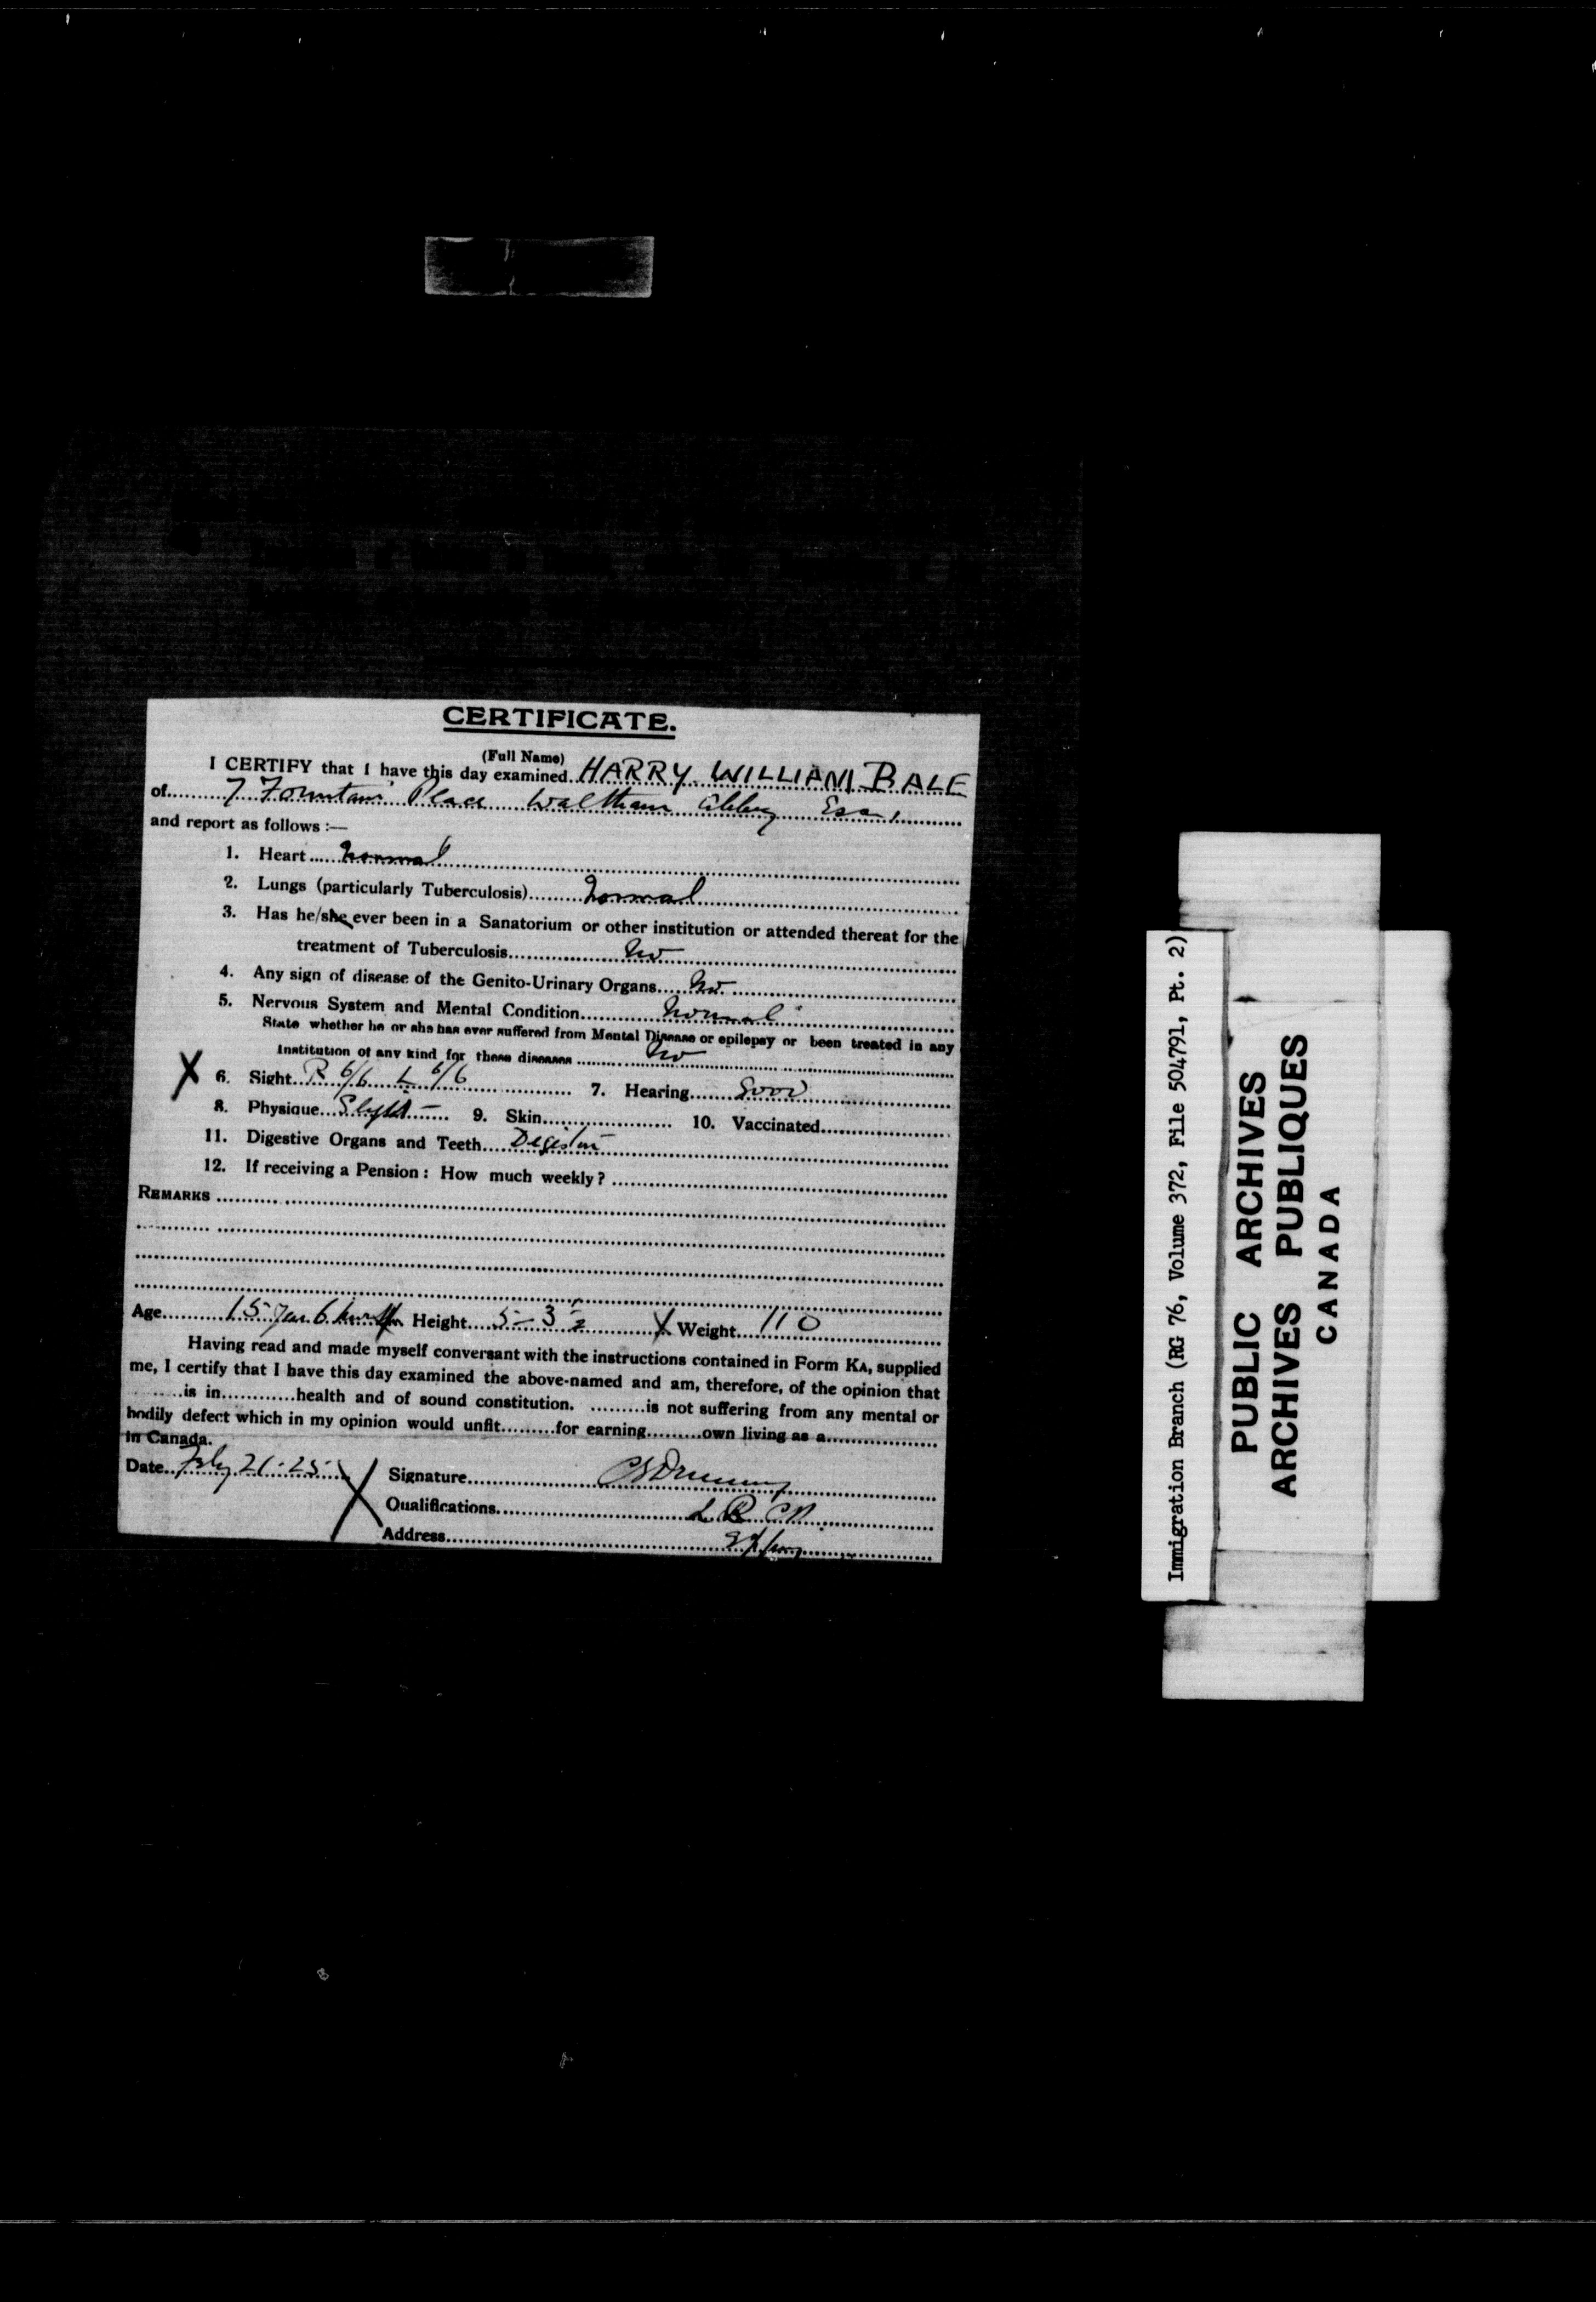 CERTIFICATE.
(Full Name)
I CERTIFY that I have this day examined HARRY WILLIAM BALE
of 7 Fountain Place Waltham Abbey
and report as follows :—
1. Heart normal
2. Lungs (particularly Tuberculosis) normal
3. Has he/she ever been in a Sanatorium or other institution or attended thereat for the
treatment of Tuberculosis No
4. Any sign of disease of the Genito-Urinary Organs No
5. Nervous System and Mental Condition normal
State whether he or she has ever suffered from Mental Disease or epilepsy or been treated in any
institution of any kind for these diseases No
X 6. Sight R 6/6 L 6/6 7. Hearing Good
8. Physique Slight 9. Skin 10. Vaccinated
11. Digestive Organs and Teeth
12. If receiving a Pension : How much weekly ?
REMARKS
Age 15 6 Height 5-3½ X Weight 110
Having read and made myself conversant with the instructions contained in Form KA, supplied
me, I certify that I have this day examined the above-named and am, therefore, of the opinion that
is in health and of sound constitution. is not suffering from any mental or
bodily defect which in my opinion would unfit for earning own living as a
in Canada.
Date 21-25 X Signature
Qualifications
Address
Immigration Branch (RG 76, Volume 372, File 504791, Pt. 2)
PUBLIC ARCHIVES
ARCHIVES PUBLIQUES
CANADA